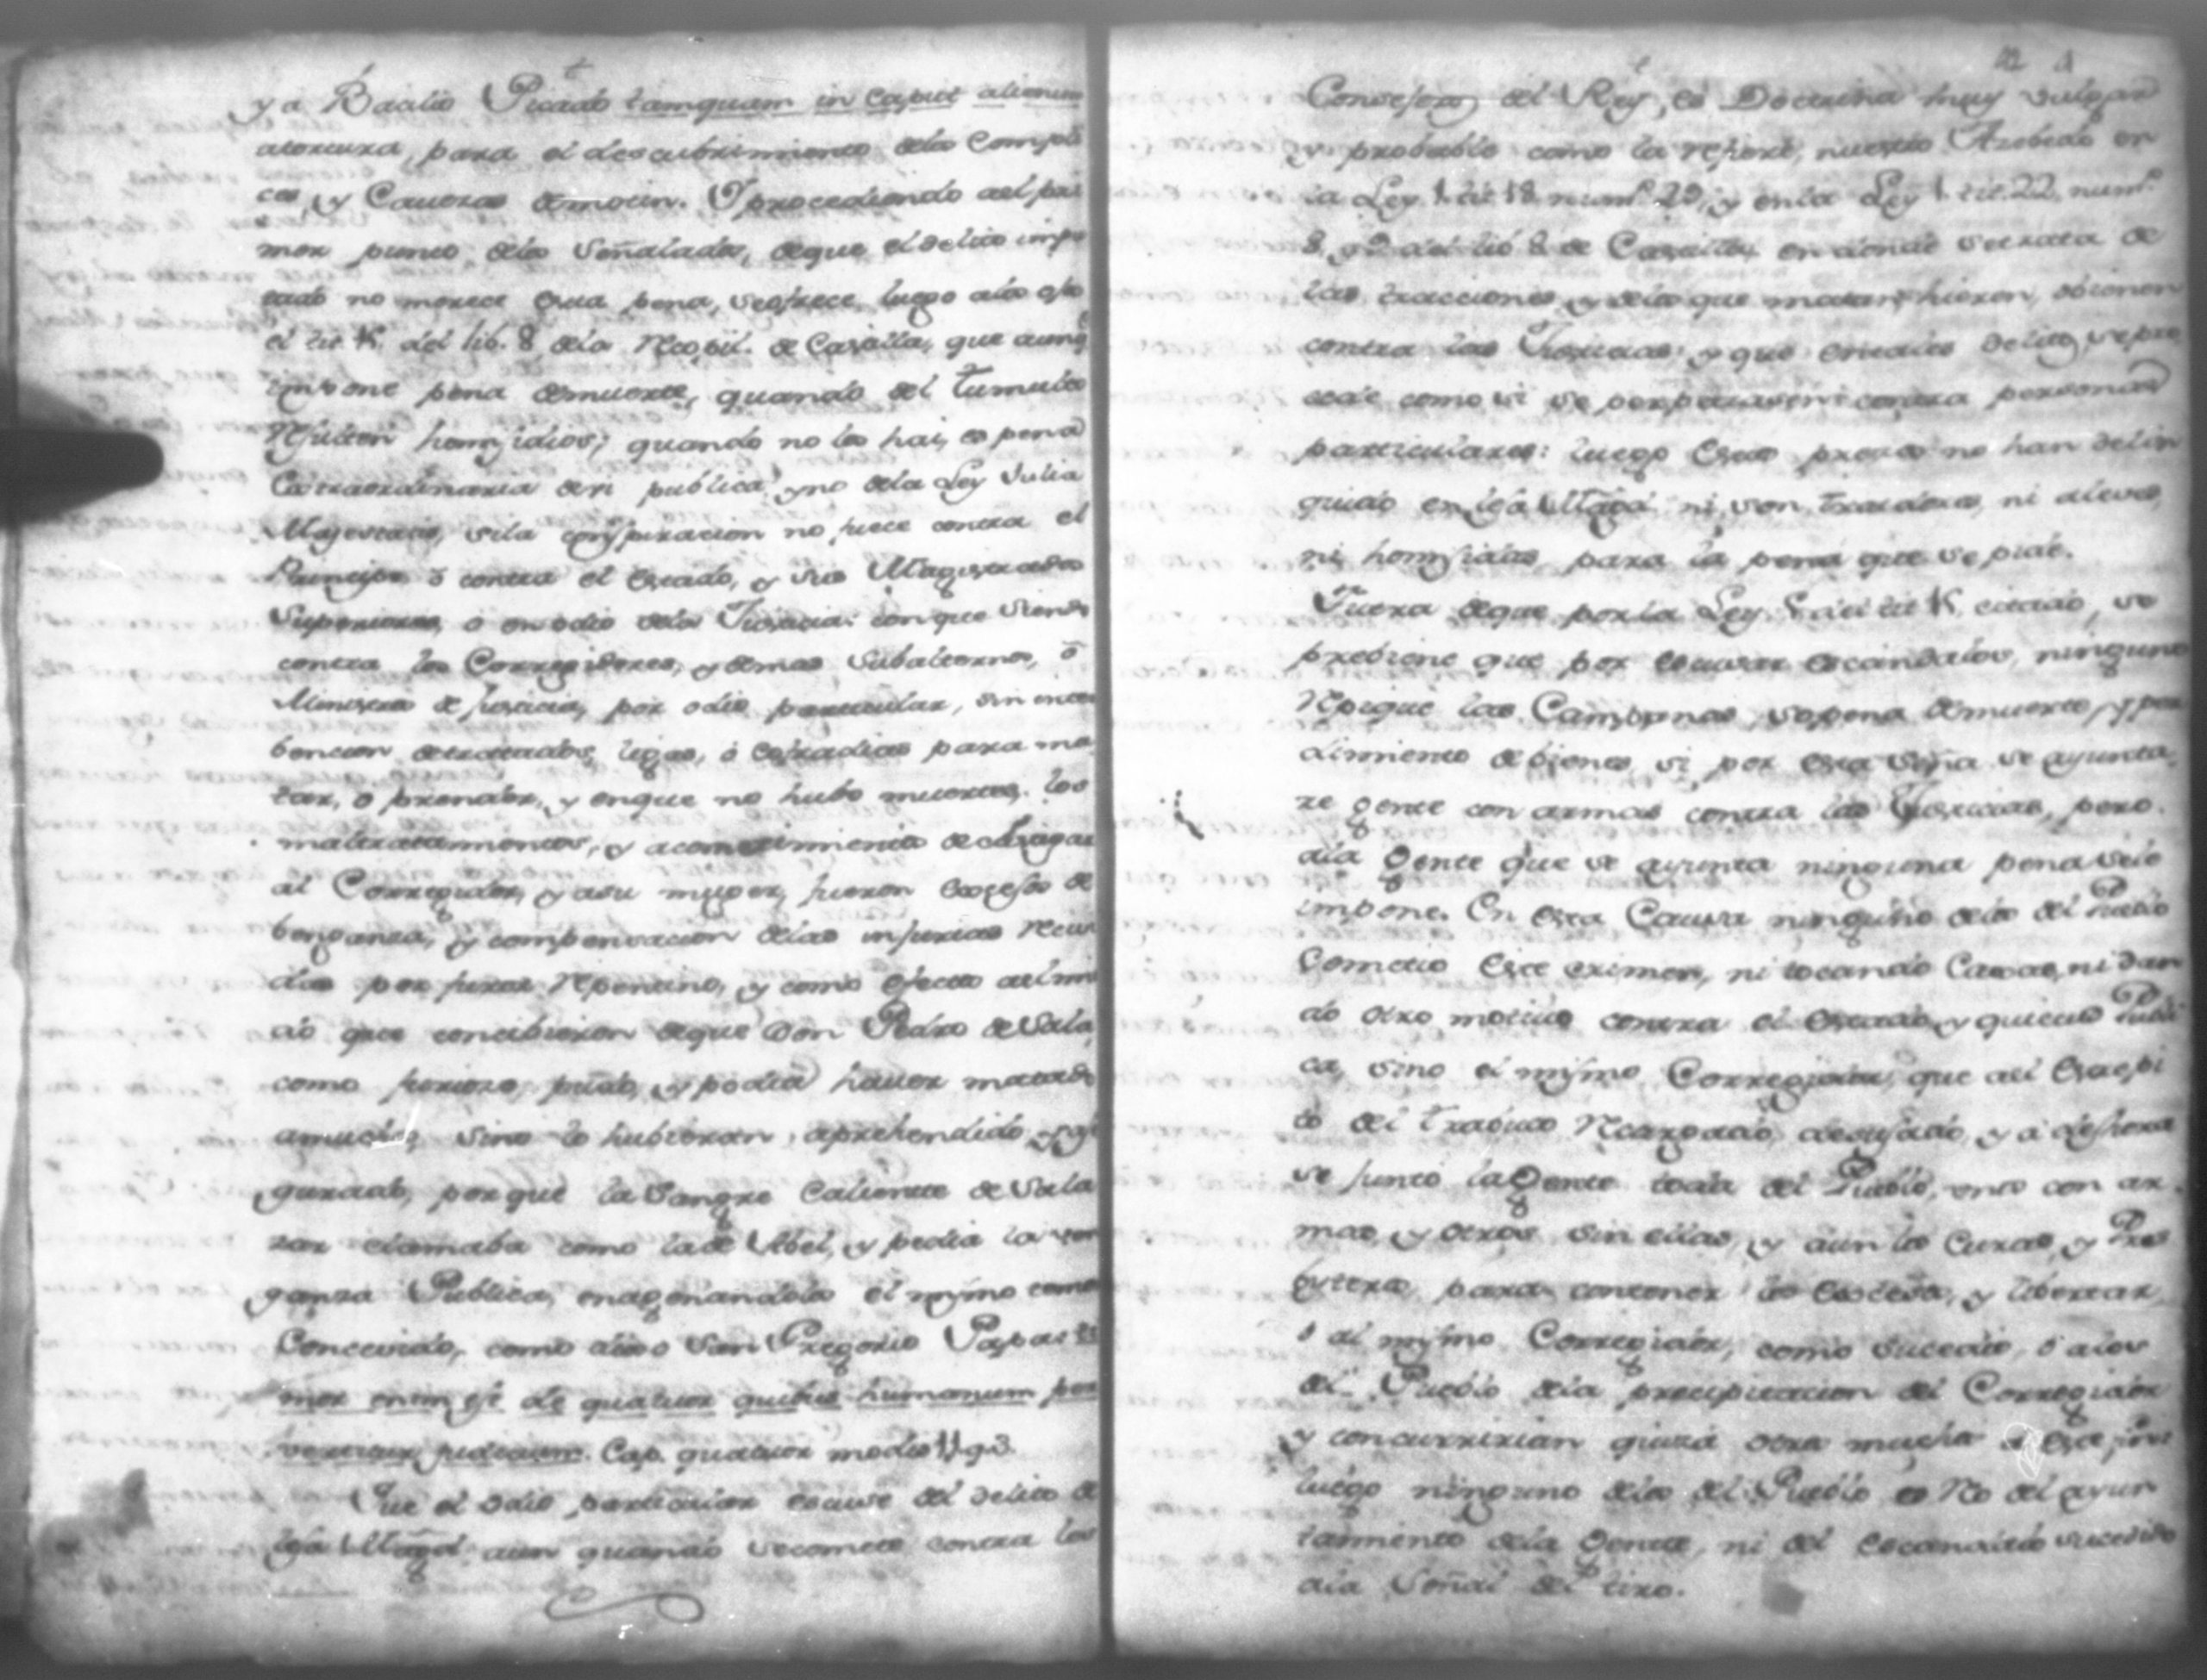 y a Bacilio Picado tamquam in caput alienum
atortura, para el descubrimiento delos Compli
ces, y Cavezas demotin. Y procediendo al pri
mer punto delos señalados, deque el delito impu
tado no merece esta pena, seofrece luego alos ojos
el tit. 15. del lib. 8 dela Recopil. de Castilla, que aunq
impone pena demuerte, quando del tumulto
Resulten homisidios; quando no los hai, es pena
extraordinaria publica, yno dela Ley Julia
Magestatis, sila conspiracion no fuese contra el
Principe ó contra el Estado, y sus Magistrados
Superiores, o en odio dela Justicia: conque siendo
contra los Corregidores, y demas subalternos, ó
Ministros de justicia, por odio particular, sin inter
bencion detratados, ligas, ó cofradias para ma
tar, o prender, y enque no hubo muertes. los
maltratamientos, y acometimiento de
al Corregidor, y asu muger, fueron exesos de
benganza, y compensacion delas injurias Reciv
das por furor Repentino, y como efecto del mie
do que concibieron deque Don Pedro de Sala
como furioso, pudo, y podia haver matado
amuchos, sino lo hubieran aprehendido, y
gurado, porque la Sangre Caliente de Sala
zar clamaba como lade Abel, y pedia la ven
ganza Publica, enagenandolos el mismo temor
Concevido, como dixo San Gregorio Papa: ti
mor enim est de quatuor quibus humanum per
vertitur judicium. Cap. quatuor modis 11. q 3.
Que el odio particular escuse del delito de
lesa Magd. aun quando secomete contra los
Consejeros del Rey, es Doctrina muy vulgar
y probable como la refiere, nuestro Azebedo en
la Ley 1. tit 18 num.o 29, y enla Ley 1. tit. 22. num.o
8, y 9 del lib 8 de Castilla, en donde setrata de
las traicciones, y delos que matan, hieren,
contra las Justicias: y que entales delitos, sepro
cede como si se perpetrasen contra personas
particulares: luego Estos presos no han delin
quido en lesa Magd. ni son traidores, ni aleves,
ni homisidas, para la pena que se pide.
Fuera deque por la Ley del tit 15. citado, se
prebiene que por escusar escandalos, ninguno
Repique las Campanas, sopena demuerte, y per
dimiento debienes, si por esta seña se ayunta
re gente con armas contra las Justicias, pero
ala Gente que se ayunta ninguna pena sele
impone. En esta Causa ninguno delos del Pueblo
Cometio Este crimen, ni tocando Caxas, ni dan
do otro motivo contra el Estado, y quietud Publi
ca, sino el mismo Corregidor, que al Estrepi
to del trabuco Recargado, y a deshora
se junto la Gente toda del Pueblo, unos con ar
mas, y otros sin ellas, y aun los Curas, y Pres
biteros, para contener los Excesos, y libertar
ó al mismo Corregidor, como sucedio, ó alos
del Pueblo dela precipitacion del Corregidor
y concurririan quiza otra mucha
luego ninguno delos del Pueblo es Reo del ayun
tamiento dela Gente, ni del escandalo sucedido
ala Señal del tiro.